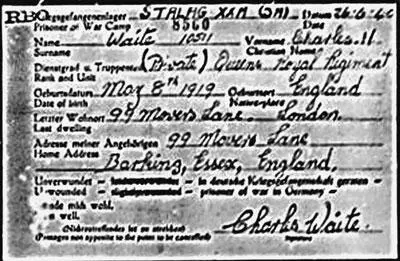 Kriegsgefangenenlager STALAG XXA (3A) Datum 26-6-40
Prisoner of War Camp 8560 Date
Name Waite 10511 Vorname Charles H.
Surname Christian Name
Dienstgrad u. Truppenteil (Private) Queens Royal Regiment
Rank and Unit
Geburtsdatum May 8TH 1919 Geburtsort England
Date of birth Native-place
Letzter Wohnort 99 Movers Lane. London.
Last dwelling
Adresse meiner Angehörigen 99 Movers Lane
Home Address Barking, Essex, England.
Unverwundet in deutsche Kriegsgefangenschaft geraten
Unwounded prisoner of war in Germany
wohl,
well.
Charles Waite.
(Passages not apposite to the point to be cancelled)